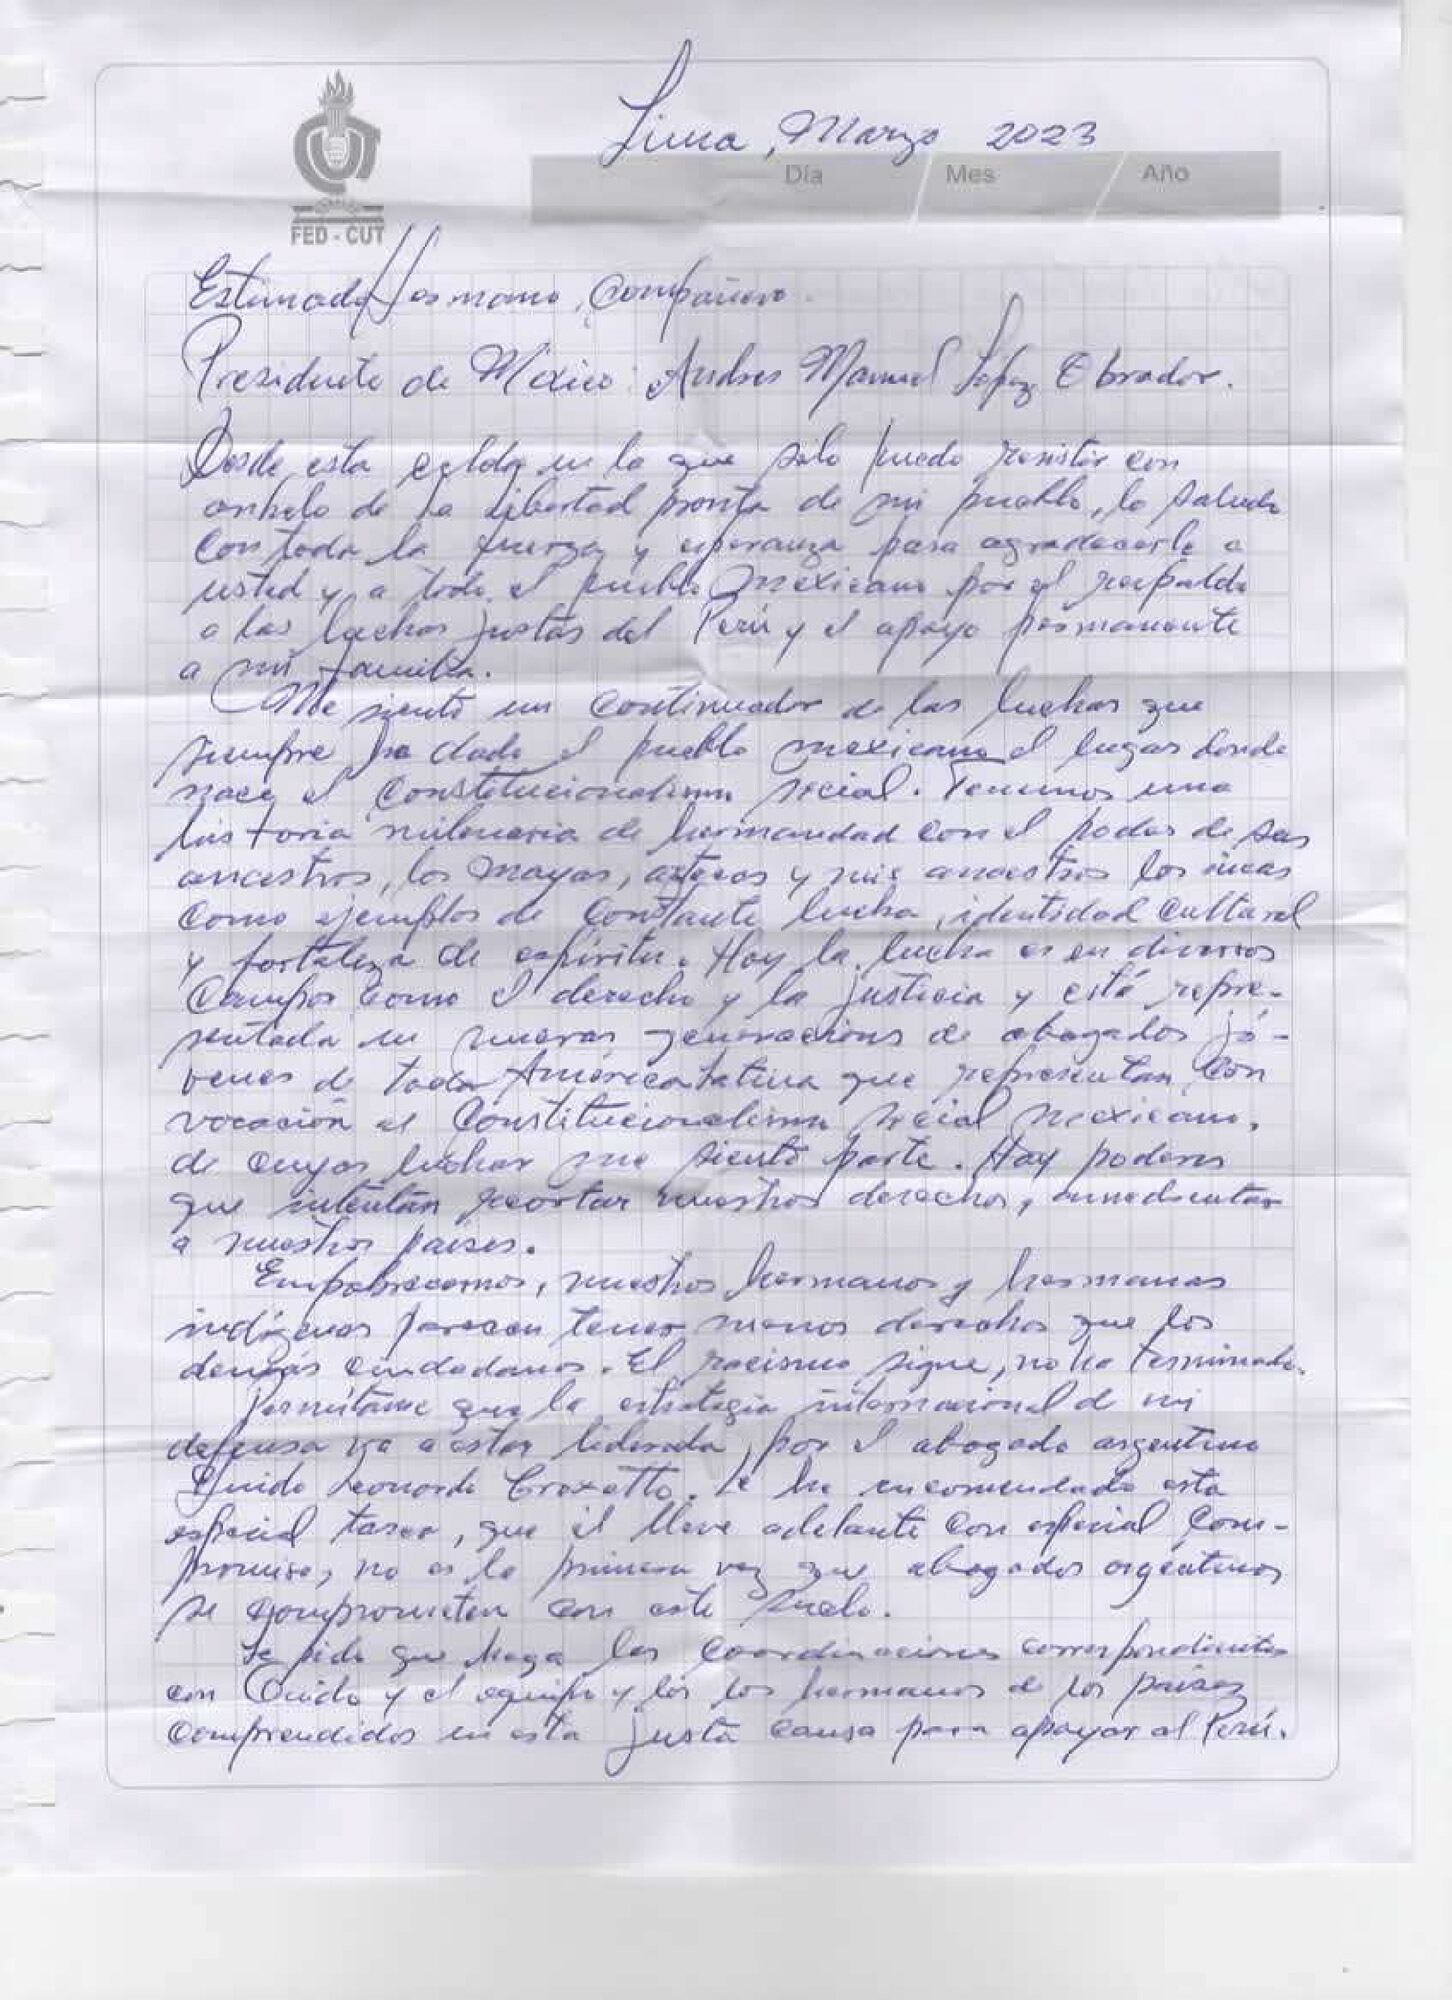 Lima, Marzo 2023
Día Mes Año
FED - CUT
Estimado Hermano, Compañero.
Presidente de México: Andres Manuel López Obrador.
Desde esta celda en la que sólo puedo resistir con
anhelo de la libertad pronta de mi pueblo, lo saludo
con toda la fuerza y esperanza para agradecerle a
usted y a todo el pueblo mexicano por el respaldo
a las luchas justas del Perú y el apoyo permanente
a mi familia.
Me siento un continuador de las luchas que
siempre ha dado el pueblo mexicano el lugar donde
nace el Constitucionalismo social. Tenemos una
historia milenaria de hermandad con el poder de sus
ancestros, los mayas, aztecas y mis ancestros los incas
como ejemplos de constante lucha, identidad cultural
y fortaleza de espíritu. Hoy la lucha es en diversos
Campos como el derecho y la justicia y está repre-
sentada en nuevas generaciones de abogados jó-
venes de toda América Latina que representan con
vocación el Constitucionalismo social mexicano,
de cuyas luchas me siento parte. Hay poderes
que intentan recortar nuestros derechos,
a nuestros países.
Empobrecernos, nuestros hermanos y hermanas
indígenas parecen tener menos derechos que los
demás ciudadanos. El racismo sigue, no ha terminado.
Permítame que la estrategia internacional de mi
defensa va a estar liderada, por el abogado argentino
Guido Leonardo Croxatto. Le he encomendado esta
especial tarea, que él lleve adelante con especial com-
promiso, no es la primera vez que abogados argentinos
se comprometen con este suelo.
Le pido que haga las coordinaciones correspondientes
con Guido y el equipo y los hermanos de los países
comprendidos en esta justa causa para apoyar al Perú.